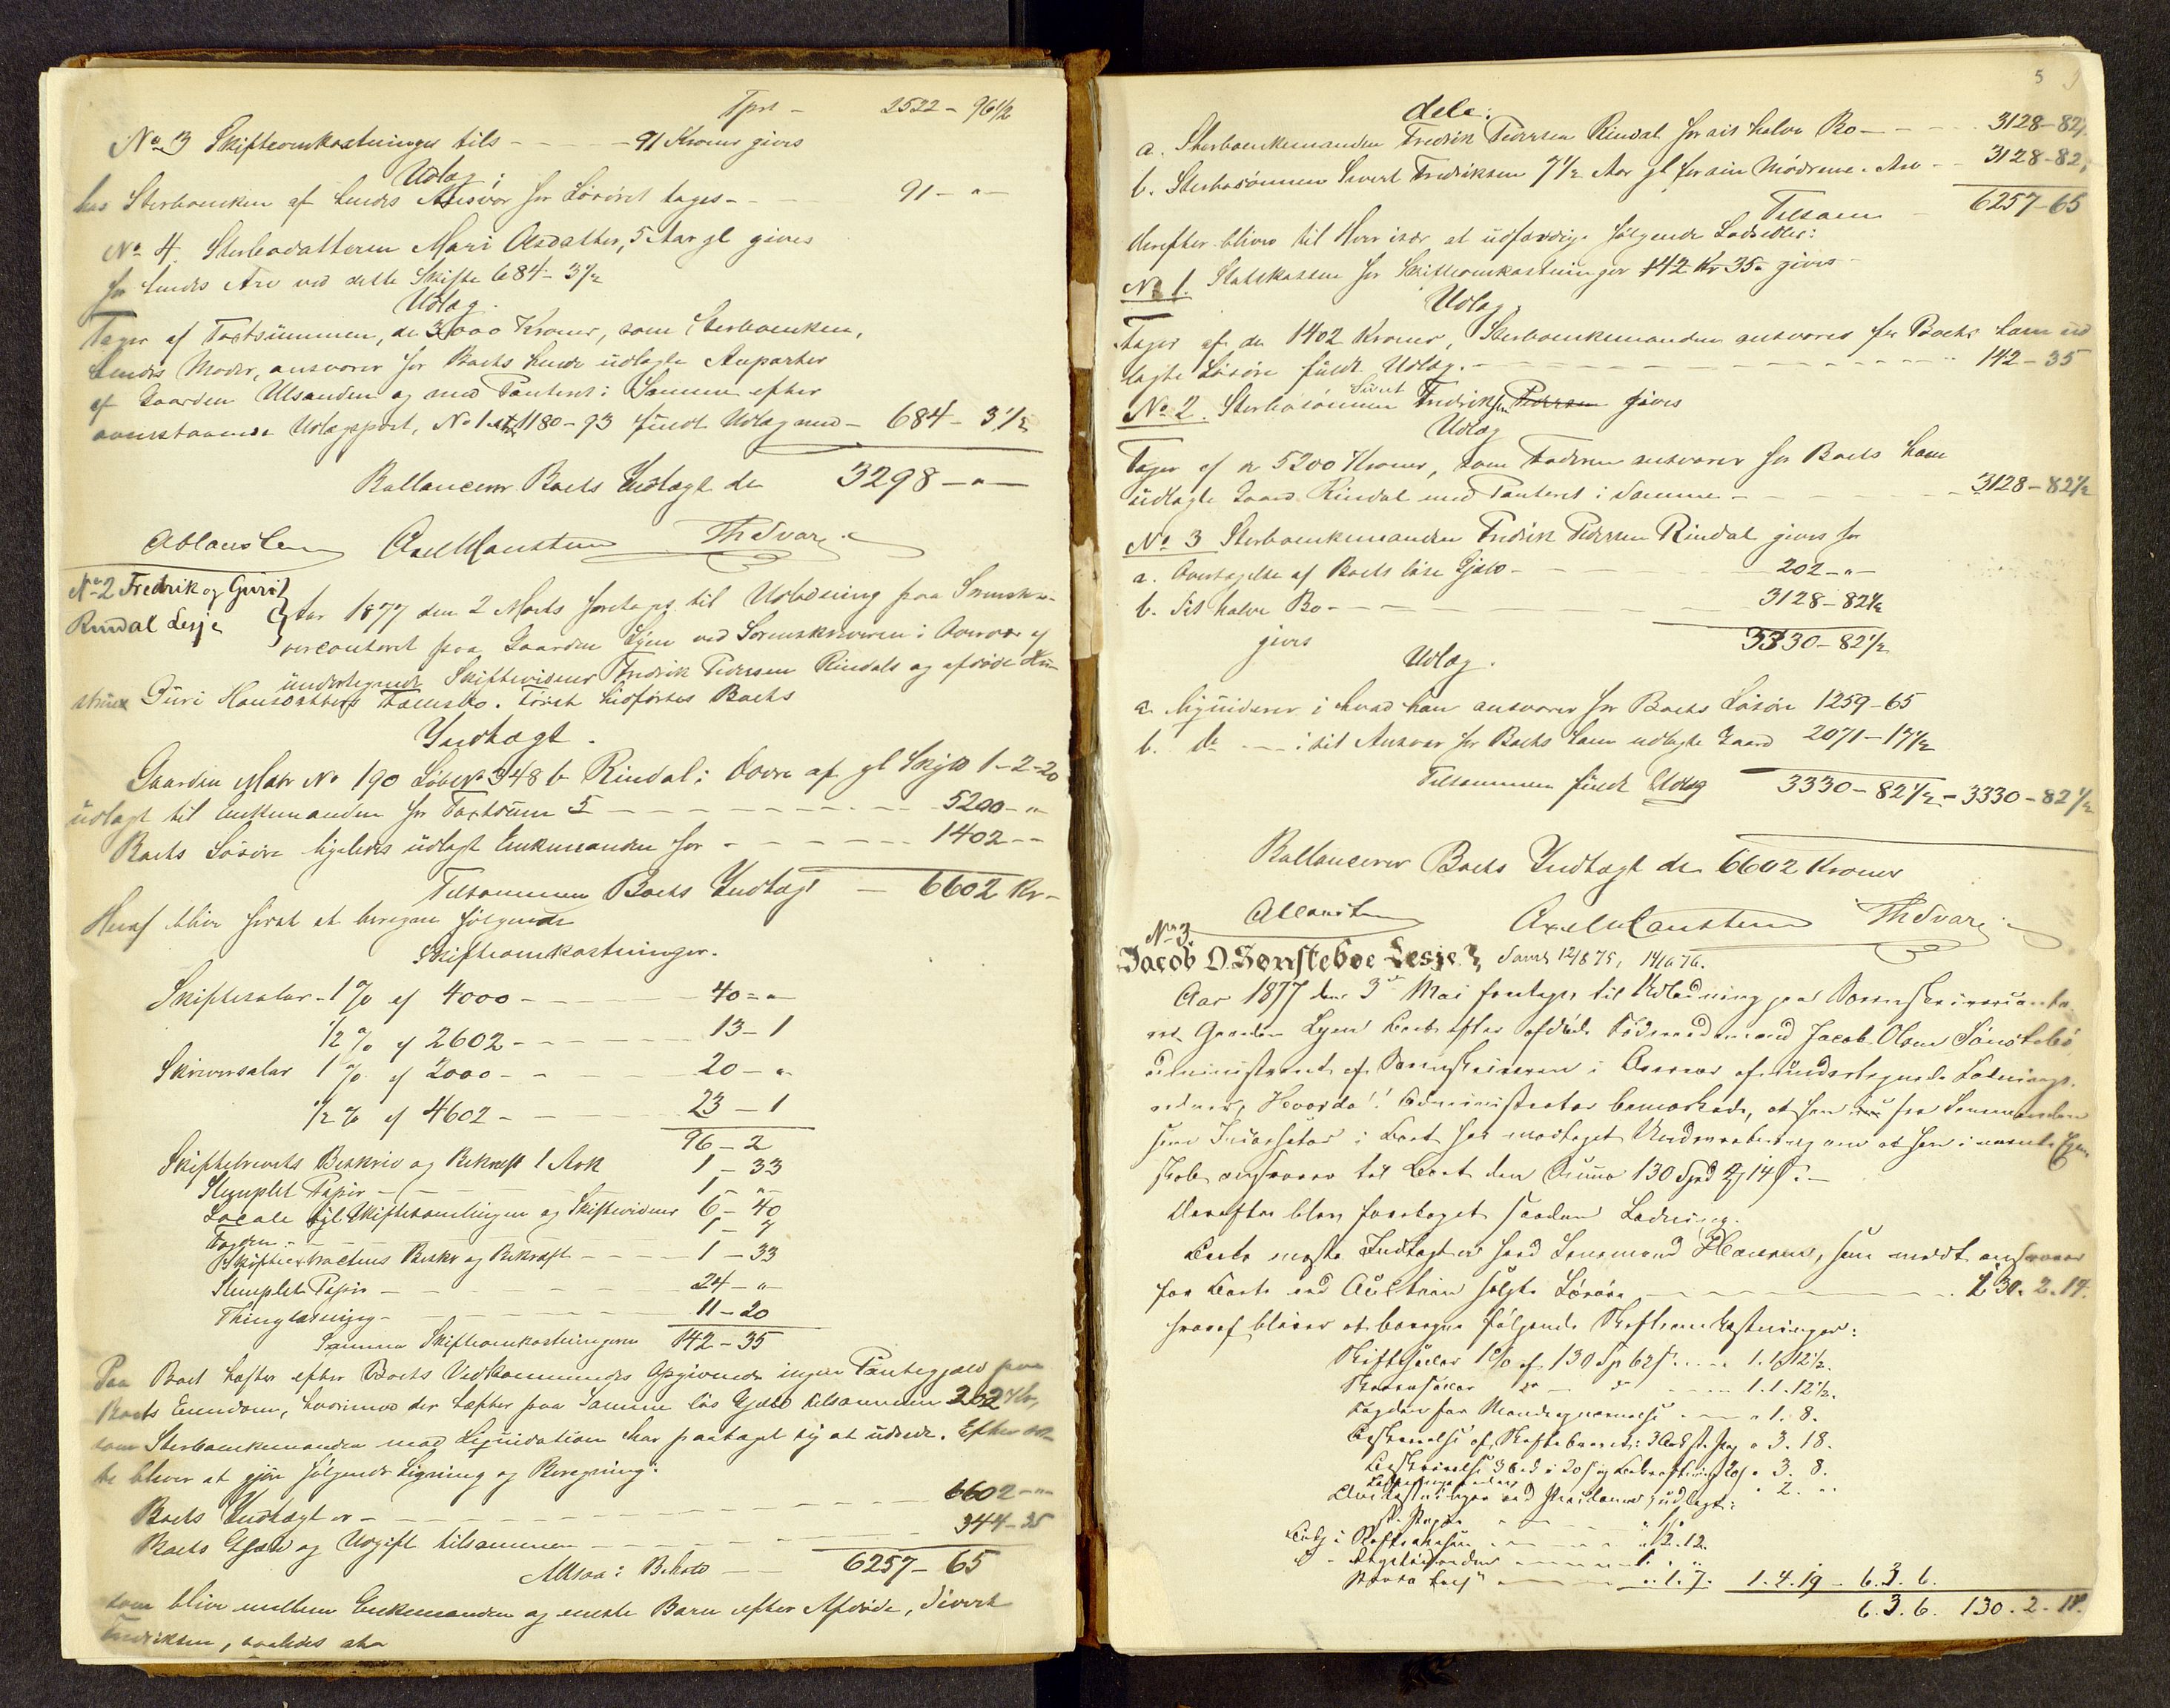 Tprt - 2522 - 96 1/2
No 3 Skifteomkostninger tils - - - - - 91 Kroner gives
Udlæg:
hos Sterboenken af hendes Ansvar for Løsøret tages - - - 91 - " -
No 4. Sterbodatteren Mari Olsdatter, 5 Aar gl gives
for hendes Arv ved dette Skifte 684 - 3 1/2
Udlæg.
Tager af Taxtsummen, de 3000 Kroner, som Sterboenken,
hendes Moder, ansvarer for Boets hende udlagte Anparter
af Gaarden Ulsanden og med Panteret i Samme efter
ovenstaaende Udlægspost, No 1 1180 - 93 fuldt Udlæg med - 684 - 3 1/2
Ballancerer Boets Indtægt de 3298 - " -
Axel Mausten Th Svare
No 2 Fredrik og Guri
Rindal Lesje
Aar 1877 den 2 Marts foretoges til Udlodning paa Sorenskri-
vercontoret paa Gaarden Lyen ved Sorenskriveren i Overvær af
undertegnede Skiftevidner Fredrik Pedersen Rindals og afdøde Hu-
strue Guri Hansdatters Fællesbo. Først hidførtes Boets
Indtægt.
Gaarden Matr No 190 Løbe No 348 b Rindal i Dovre af gl Skyld 1-2-20
udlagt til Enkemanden for Taxtsum - - - - 5200 - "
Boets Løsøre ligeledes udlagt Enkemanden for - - - - - - 1402 - -
Tilsammen Boets Indtægt - 6602 Kr -
Heraf bliver først at beregne følgende
Skifteomkostninger.
Skiftesalær - 1 % af 4000 - - - 40 = "
1/2 % af 2602 - - - - - 13 - 1
Skriversalær 1 % af 2000 - - - 20 - "
1/2 % af 4602 - - - 23 - 1
96 - 2
Skiftebrevets Beskriv og Bekræft 1 Ark 1 - 33
Stemplet Papir - - - 1 - "
Locale til Skiftesamlingen og Skiftevidner 6 - 40
Fogden - - - 1 - 7
Skifteextractens Beskr og Bekræft - - - - 1 - 33
Stemplet Papir - - - 24 - "
Thinglæsning - - - 11 - 20
Summa Skifteomkostningerne 142 - 35
Paa Boet hefter efter Boets Vedkommendes Opgivende ingen Pantegjæld paa
Boets Eiendom, hvorimod der hefter paa Samme løs Gjæld tilsammen 202 Kr,
som Sterboenkemanden mod Liquidation har paataget sig at udrede. Efter det-
te bliver at gjøre følgende Ligning og Beregning:
Boets Indtægt er - - - 6602 - "
Boets Gjæld og Udgift tilsammen - - - 344 - 35
Altsaa: Behold - - 6257 - 65
som bliver mellem Enkemanden og eneste Barn efter Afdøde, Sivert
Fredriksen, saaledes at
5
dele:
a. Sterboenkemanden Fredrik Pedersen Rindal for sit halve Bo - - - 3128 - 82 1/2
b. Sterbosønnen Sivert Fredriksen 7 1/2 Aar gl for sin Mødrene Arv - - 3128 - 82 1/2
Tilsam - 6257 - 65
Herefter bliver til Hver især at udfærdige følgende Lodsedler:
No 1. Statskassen for Skifteomkostninger 142 Kr 35 gives -
Udlæg.
Tager af de 1402 Kroner, Sterboenkemanden ansvarer for Boets ham ud
lagte Løsøre fuldt Udlæg. - - - 142 - 35
No 2. Sterbosønnen Sivert Fredriksen Pedersen gives
Udlæg
Tager af de 5200 Kroner, som Faderen ansvarer for Boets ham
udlagte Gaard Rindal med Panteret i Samme - - - 3128 - 82 1/2
No 3 Sterboenkemanden Fredrik Pedersen Rindal gives for
a. Overtagelse af Boets løse Gjæld - - - 202 - "
b. Sit halve Bo - - - 3128 - 82 1/2
gives 3330 - 82 1/2
Udlæg.
a. liquiderer i hvad han ansvarer for Boets Løsøre 1259 - 65
b. do - - i sit Ansvar for Boets ham udlagte Gaard 2071 - 17 1/2
Tilsammen fuldt Udlæg 3330 - 82 1/2 - 3330 - 82 1/2
Ballancerer Boets Indtægt de 6602 Kroner
Axel Mausten Th Svare
No 3.
Jacob O. Sønsteboe Lesje. Saml 12/8 75, 14/6 76.
Aar 1877 den 3de Mai foretoges til Udlodning paa Sorenskrivercontoret
paa Gaarden Lyen Boet efter afdøde Føderaadsmand Jacob Olsen Sønstebø
administreret af Sorenskriveren i Overvær af undertegnede Lodnings-
vidner, Hvorda! Administrator bemærkede, at han fra Lensmanden
som Incassator i Boet har modtaget Underretning om at han i nævnte Egen
skab ansvarer til Boet den Summa 130 Spd 2 14 s. -
Derefter blev foretaget saadan Lodning.
Boets eneste Indtægt er hvad Lensmand Hansen, som meldt ansvarer
for Boets ved Auktion solgte Løsøre - - - 130. 2. 14.
hvoraf bliver at beregne følgende Skifteomkostninger:
Skiftesalær 1 % af 130 Sp 62 s . . . 1. 1. 12 1/2.
Skriversalær do - do - - - 1. 1. 12 1/2.
Fogden for - - - " 1. 8.
" 3. 18.
" 3. 8.
" 2. "
st. Papir
" 2. 12.
" 1. 7. 1. 4. 19 - 6. 3. 6.
6. 3. 6. 130. 2. 14.